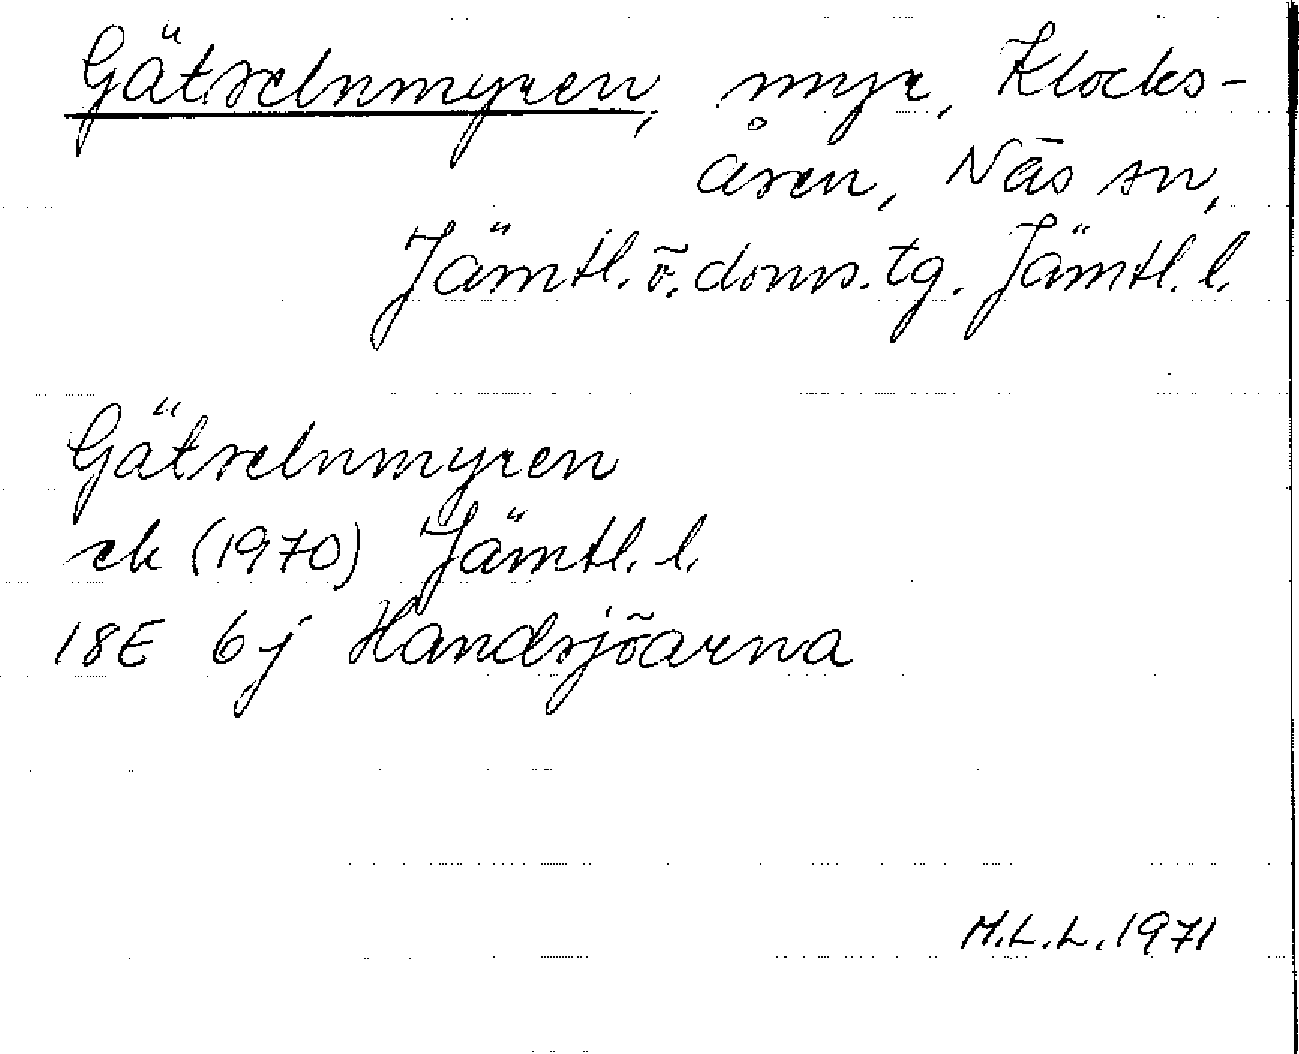 Gätselnmyren, myr, Klocks-
åsen, Näs sn,
Jämtl. ö. doms. tg. Jämtl. l.
Gätselnmyren
ek (1970) Jämtl. l.
18E 6j Handsjöarna
M.L.L. 1971